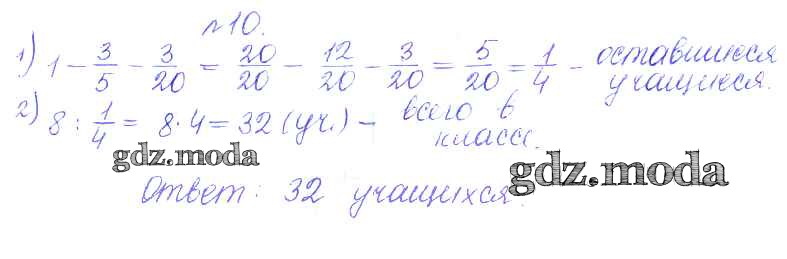 №10.
1) 1 - 3/5 - 3/20 = 20/20 - 12/20 - 3/20 = 5/20 = 1/4 - оставшиеся учащиеся.
2) 8 : 1/4 = 8·4 = 32 (уч.) - всего в классе.
gdz.moda
gdz.moda
Ответ: 32 учащихся.